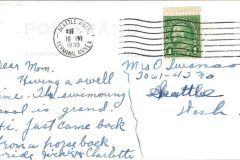 POST CARD
SEATTLE, WASH.
AUG
10 PM
1939
TERMINAL ANNEX
Dear Mom.
Having a swell
time. The swimming
pool is grand.
Just came back
from a horseback
ride. Dick & Charlotte
Mrs O Swanson
2061-42 
Seattle
Wash
1